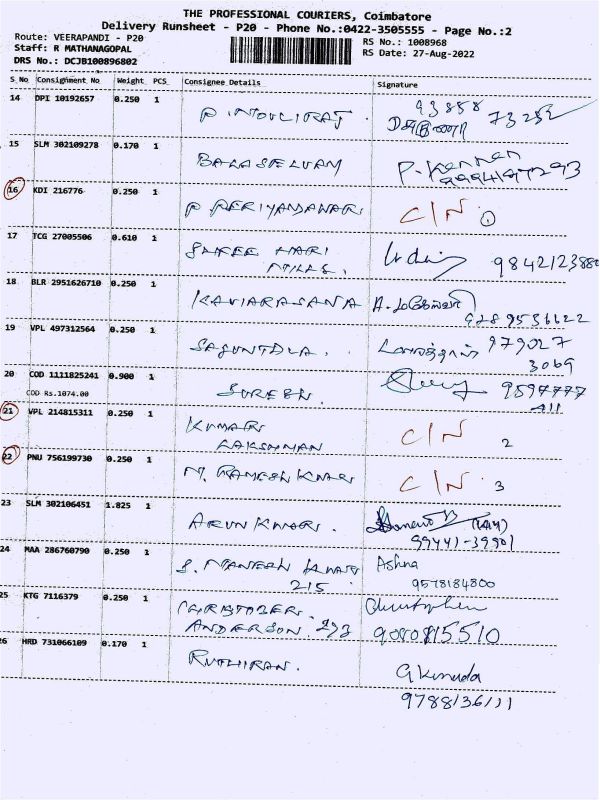 THE PROFESSIONAL COURIERS, Coimbatore
Delivery Runsheet - P20 - Phone No.:0422-3505555 - Page No.:2
Route: VEERAPANDI - P20
Staff: R MATHANAGOPAL
DRS No.: DCJB100896802
RS No.: 1008968
RS Date: 27-Aug-2022
S No Consignment No Weight PCS Consignee Details Signature
14 DPI 10192657 0.250 1 93858
73252
15 SLM 302109278 0.170 1 BALASELVAM P. Kannan
16 KDI 216776 0.250 1 P PERIYANDAVAR C/N 1
17 TCG 27005506 0.610 1 SHREE HARI
MILLS. 9842123880
18 BLR 2951626710 0.250 1 KAVIARASANA
9289536622
19 VPL 497312564 0.250 1 979027
3069
20 COD 1111825241 0.900 1 SURESH. 9597777
COD Rs.1074.00 411
21 VPL 214815311 0.250 1 KUMARI
LAKSHMAN C/N 2
22 PNU 756199730 0.250 1 M. RAMESH KMAR C/N 3
23 SLM 302106451 1.825 1 ARUN KMAR.
99441-39901
24 MAA 286760790 0.250 1 Ashna
215 9578184800
25 KTG 7116379 0.250 1 CHRISTOBER Christopher
ANDERSON. 293 9080815510
26 HRD 731066109 0.170 1 RUTHIRAN.
9788136111